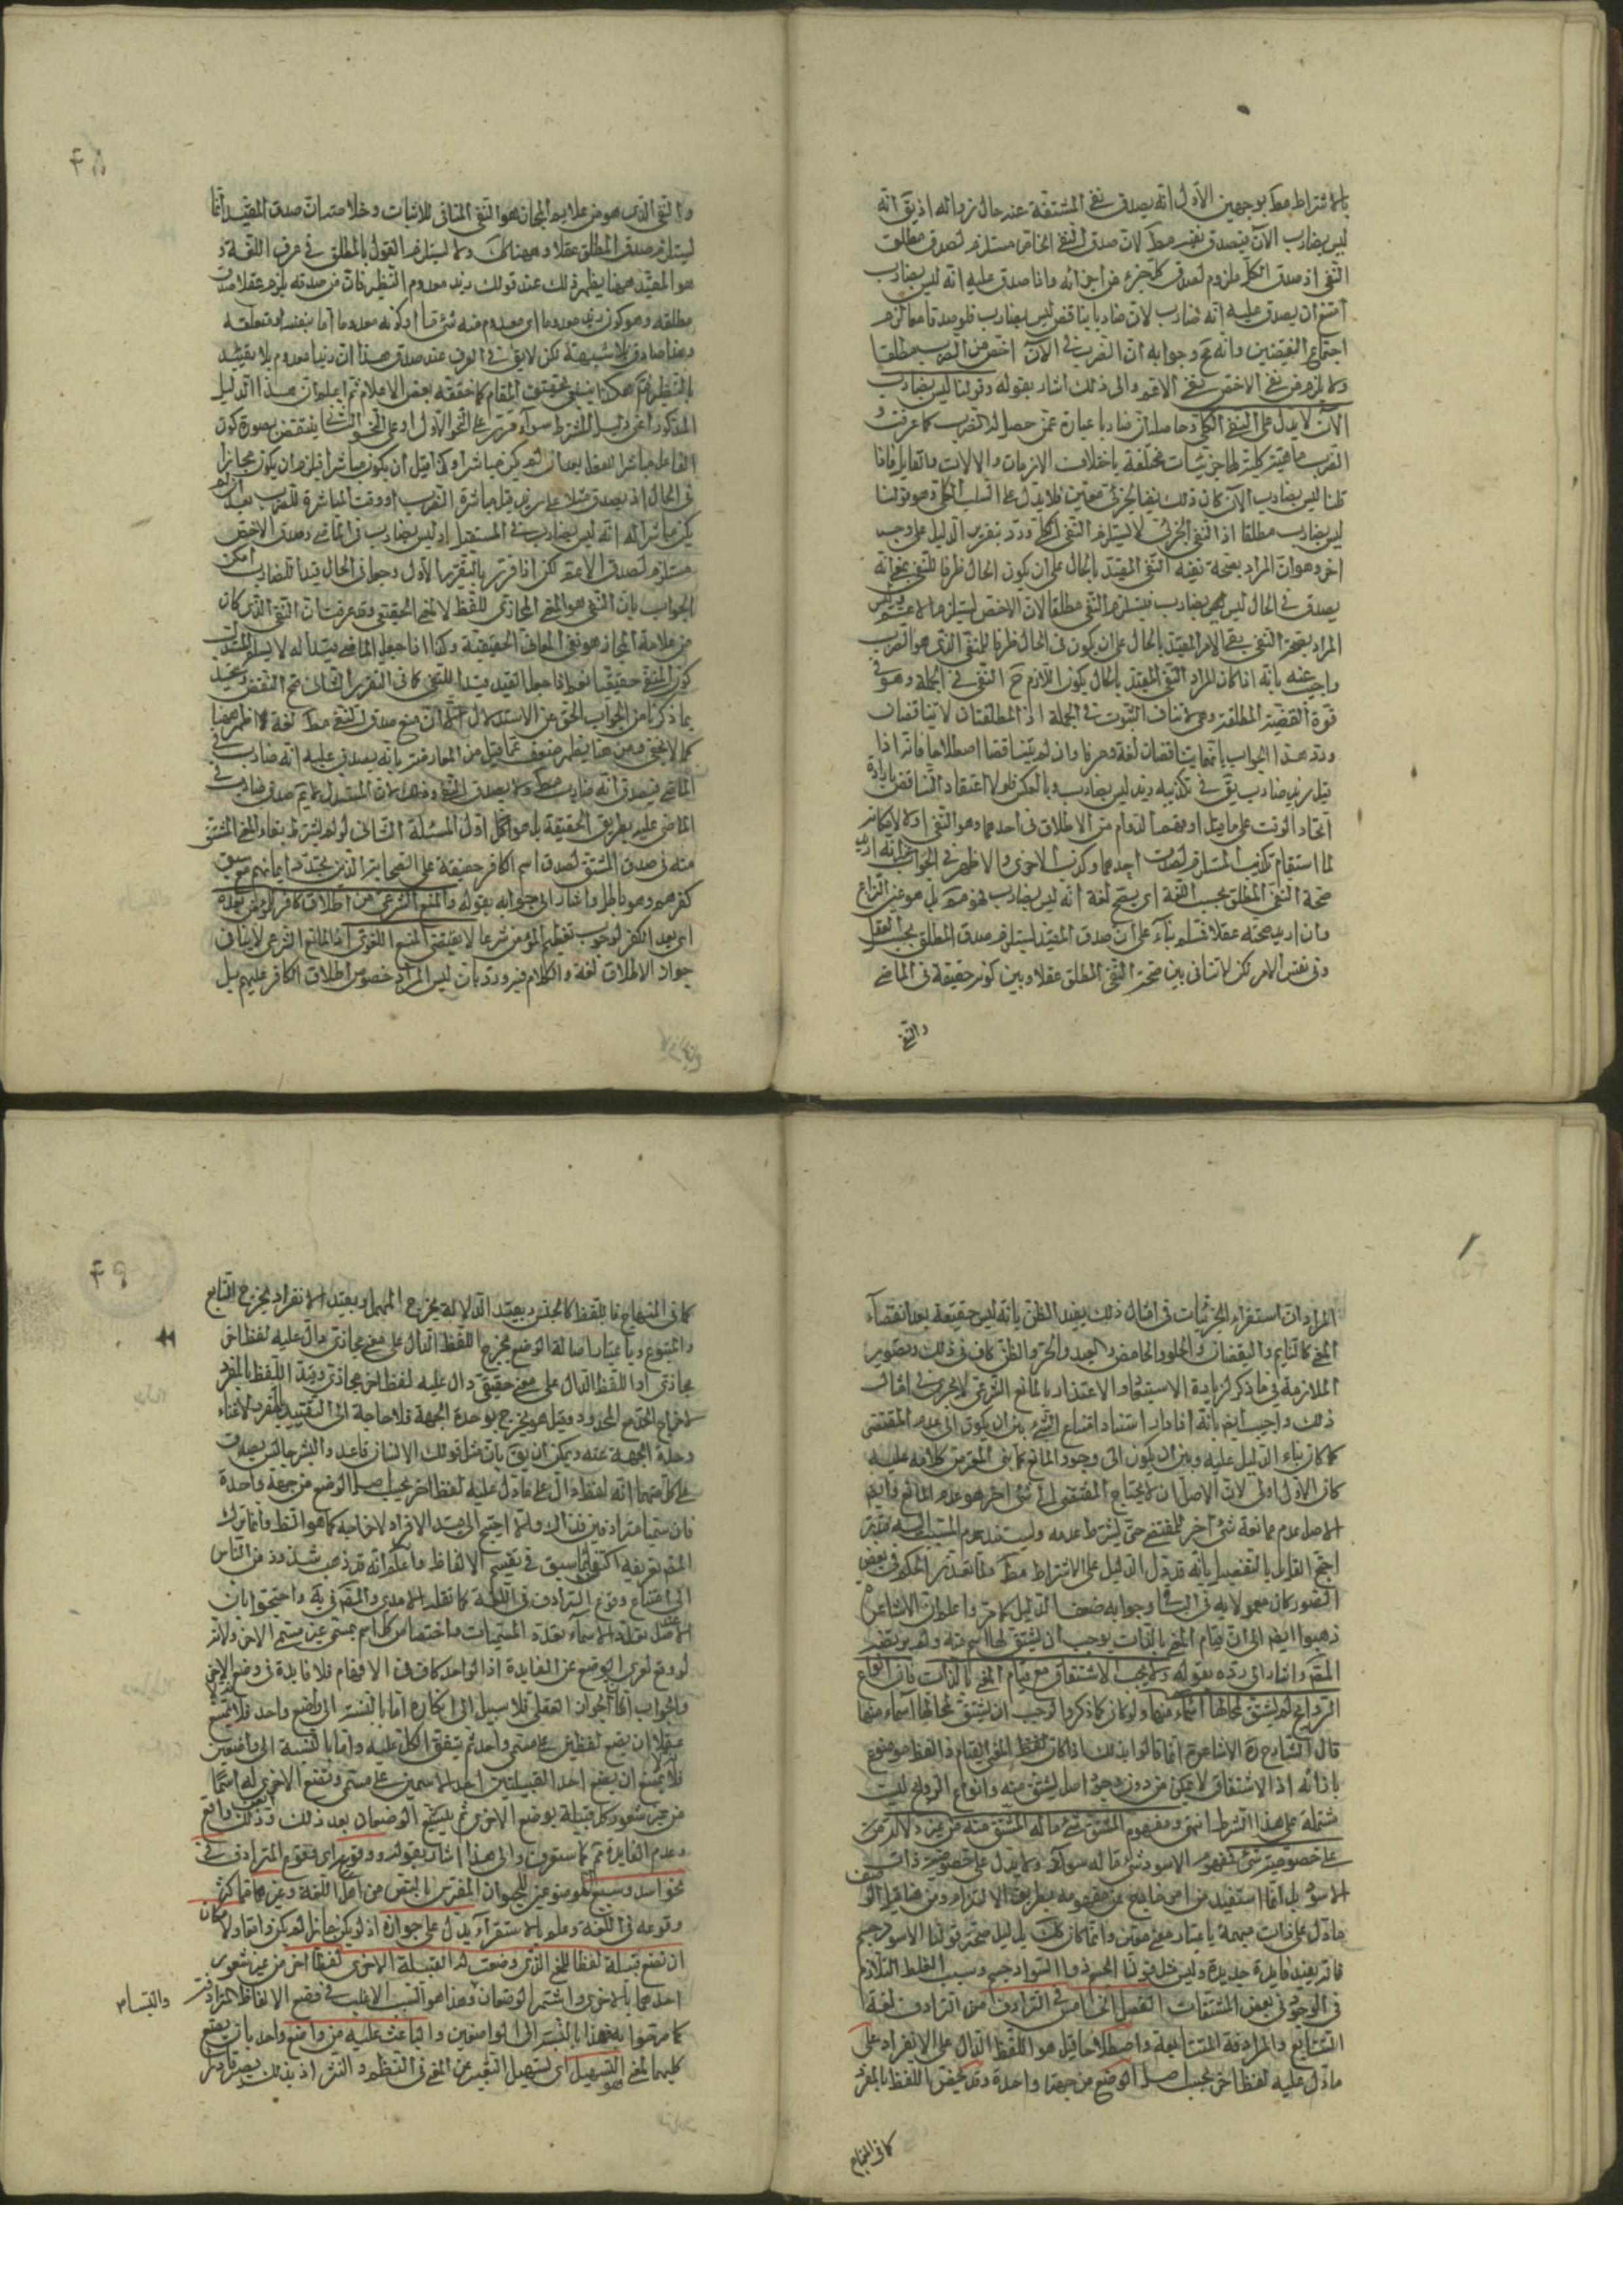 بالاشتراط مط بوجهين الاول انه يصدق نفى المشتقة عند حال زواله اذ يق انه
ليس بضارب الآن فيصدق نفيه مط لان صدق النفى الخاص مستلزم لصدق مطلق
النفى اذ صدق الكل ملزوم لصدق كل جزء من اجزائه واذا صدق عليه انه ليس بضارب
امتنع ان يصدق عليه انه ضارب لان ضاربا يناقض ليس بضارب فلو صدقا معا لزم
اجتماع النقيضين وانه مح وجوابه ان الضرب فى الآن اخص من الضرب مطلقا
ولا يلزم من نفى الاخص نفى الاعم والى ذلك اشار بقوله وقولنا ليس بضارب
الآن لا يدل على النفى الكلى وحاصله ان ضاربا عبارة عمن حصل له الضرب كما عرفت و
الضرب ماهية كلية لها جزئيات مختلفة باختلاف الازمان والآلات والقابل فاذا
قلنا ليس بضارب الآن كان ذلك نفيا لجزئى معين فلا يدل على السلب الكلى وهو قولنا
ليس بضارب مطلقا اذ النفى الجزئى لا يستلزم النفى الكلى وقد يقرر الدليل على وجه
اخر وهو ان المراد بصحة نفيه النفى المقيد بالحال على ان يكون الحال ظرفا للنفى بمعنى انه
يصدق فى الحال ليس بضارب فيستلزم النفى مطلقا لان الاخص يستلزم الاعم وليس
المراد بصحة النفى نفى الامر المقيد بالحال على ان يكون فى الحال ظرفا للمنفى الذى هو الضرب
واجيب عنه بانه اذا كان المراد النفى المقيد بالحال يكون اللازم ح النفى فى الجملة وهو فى
قوة القضية المطلقة وهى لا تنافى الثبوت فى الجملة اذ المطلقتان لا تتناقضان
ورد هذا الجواب بانهما يتناقضان لغة وعرفا وان لم يتناقضا اصطلاحا فانه اذا
قيل زيد ضارب يق فى تكذيبه زيد ليس بضارب وبالعكس فلولا اعتقاد التناقض بارادة
اتحاد الوقت على ما قيل او بفهم الدوام من الاطلاق فى احدهما وهو النفى
لما استقام تكذيب المستلزم لصدق احدهما وكذب الاخرى والاظهر فى الجواب انه ان اريد
صحة النفى المطلق بحسب اللغة اى يصح لغة انه ليس بضارب فهو مم بل هو عين النزاع
وان اريد صحته عقلا فمسلم بناء على ان صدق المقيد يستلزم صدق المطلق بحسب العقل
وفى نفس الامر لكن لا تنافى بين صحة النفى المطلق عقلا وبين كونه حقيقة فى الماضى
والنفى
والنفى الذى هو من علايم المجاز هو النفى المنافى للاثبات وخلاصته ان صدق المقيد انما
يستلزم صدق المطلق عقلا وههنا كك ولا يستلزم القول بالمطلق فى عرف اللغة و
هو المفيد ههنا يظهر ذلك عند قولك زيد معدوم النظير فان من صدقه يلزم عقلا صدق
مطلقه وهو كون زيد معدوما اى معدوم منه شئ ما او كونه معدوما اما بنفسه او بمتعلقه
وهذا صادق بلا شبهة لكن لا يق فى العرف عند صدق هذا ان زيدا معدوم بلا تقييد
بالنظير هكذا ينبغى تحقيق المقام كما حققه بعض الاعلام ثم اعلم ان هذا الدليل
المذكور اعنى دليل المشترط سواء قرر على النحو الاول او على النحو الثانى ينتقض بصورة كون
الفاعل مباشرا للفعل بعد ان لم يكن مباشرا
فى الحال اذ يصدق مثلا على زيد قبل مباشرة الضرب او وقت المباشرة للضرب بعد ان لم
يكن مباشرا له انه ليس بضارب فى المستقبل او ليس بضارب فى الماضى وصدق الاخص
مستلزم لصدق الاعم لكن اذا قرر بالتقرير الاول وجعل فى الحال قيدا للضارب امكن
الجواب بان النفى هو المعنى المجازى للفظ لا المعنى الحقيقى وقد عرفت ان النفى الذى كان
من علامة المجاز هو نفى المعانى الحقيقية وكذا اذا جعل الماضى قيدا له
كون المنفى حقيقيا نعم اذا جعل القيد قيدا للنفى كما فى التقرير الثانى صح النقض
بما ذكرنا من الجواب الحق عن الاستدلال اعنى منع صدق النفى مط لغة ههنا
كما لا يخفى ومن هنا يظهر ضعف ما قيل من المعارضة بانه يصدق عليه انه ضارب فى
الماضى فيصدق انه ضارب مط ولا يصدق النفى وذلك لان المستدل لا يتم صدق ضارب فى
الماضى عليه بطريق الحقيقة بل هو اول المسئلة الثانى لو لم يشترط بقاء المعنى المشتق
منه فى صدق المشتق لصدق اسم الكافر حقيقة على الصحابة الذين تجدد ايمانهم مع سبق
كفرهم وهو باطل واشار الى جوابه بقوله والمنع الشرعى من اطلاق كافر للمؤمن بعده
اى بعد الكفر لوجوب تعظيم المؤمن شرعا لا يقتضى المنع اللغوى اذ المانع الشرعى لا ينافى
جواز الاطلاق لغة والكلام فيه ورد بان ليس المراد خصوص اطلاق الكافر عليهم بل
المراد ان استقراء الجزئيات فى امثال ذلك يفيد الظن بانه ليس حقيقة بعد انقضاء
المعنى كالنايم واليقضان والحلو والحامض والعبد والحر والظن كاف فى ذلك وتصوير
الملازمة فى ما ذكر لزيادة الاستبعاد والاعتذار بالمانع الشرعى لا يجرى فى امثال
ذلك واجيب ايضا بانه اذا دار استناد امتناع الشئ بين ان يكون الى عدم المقتضى
كما كان بناء الدليل عليه وبين ان يكون الى وجود المانع كما بنى المعترض كلامه عليه
كان الاول اولى لان الاصل ان لا يحتاج المقتضى الى شئ اخر هو عدم المانع وايضا
الاصل عدم ممانعة شئ آخر للمقتضى حتى يشترط عدمه وليستند عدم المسبب اليه فتدبر
احتج القائل بالتفصيل بانه قد دل الدليل على الاشتراط مط ولما تعذر الحكم فى بعض
الصور كان معمولا به فى الباقى وجوابه ضعف الدليل كما مر واعلم ان الاشاعرة
ذهبوا ايضا الى ان قيام المعنى بالذات يوجب ان يشتق لها اسم منه ولم يرتضه
المصم واشار الى رده بقوله ولا يجب الاشتقاق مع قيام المعنى بالذات فان انواع
الروائح لم يشتق لمحالها اسماء منها ولو كان كما ذكروا لوجب ان يشتق لمحالها اسماء منها
قال الشارح ره الاشاعرة انما قالوا بذلك اذا كان لذلك المعنى القيام ذا لفظ موضوع
بازائه اذ الاشتقاق لا يمكن من دون وجود اصل يشتق منه وانواع الروايح ليست
مشتملة على هذا الشرط انتهى ومفهوم المشتق شئ ما له المشتق منه من غير دلالة
على خصوصية شئ كمفهوم الاسود شئ ما له سواد ولا يدل على خصوصية ذات
الاسود بل انما استفيد من امر خارج عن مفهومه بطريق الالتزام ومن هنا قيل الوصف
ما دل على ذات مبهمة باعتبار معنى معين وانما كان كك بدليل صحة قولنا الاسود جسم
فانه يفيد فايدة جديدة وليس مثل قولنا الجسم ذو السواد جسم وسبب الغلط التلازم
فى الوجود فى بعض المشتقات الفصل الخامس فى الترادف من الترادف لغة
التتابع والمترادفة المتتابعة واصطلاحا قيل هو اللفظ الدال على الانفراد على
ما دل عليه لفظ اخر بحسب اصل الوضع من جهة واحدة وقد يخص اللفظ بالمفرد
كما فى المنهاج
كما فى المنهاج فاللفظ كالجنس وبقيد الدلالة يخرج المهمل وبقيد الانفراد يخرج التابع
والمتبوع وباعتبار اصالة الوضع يخرج اللفظ الدال على معنى مجازى دال عليه لفظ اخر
مجازى او اللفظ الدال على معنى حقيقى دال عليه لفظ اخر مجازى وقيد اللفظ بالمفرد
لاخراج الحد مع المحدود وقيل هو يخرج بوحدة الجهة فلا حاجة الى التقييد بالمفرد لاغناء
وحدة الجهة عنه ويمكن ان يق بان مثل قولك الانسان قاعد والبشر جالس يصدق
على كل منهما انه لفظ دال على ما دل عليه لفظ اخر بحسب اصل الوضع من جهة واحدة
فان سميا مترادفين فذاك والا احتيج الى قيد الافراد لاخراجه كما هو الظ وانما ترك
المصم تعريفه اكتفاء بما سبق فى تقسيم الالفاظ واعلم انه قد ذهب شذوذ من الناس
الى امتناع وقوع الترادف فى اللغة كما نقله الامدى والمصم فى يه واحتجوا بان
الاصل عند تعدد الاسماء تعدد المسميات واختصاص كل اسم بمسمى غير مسمى الاخر ولانه
لو وقع لعرى الوضع عن الفايدة اذ الواحد كاف فى الافهام فلا فايدة فى وضع الاخر
والجواب انما الجواز العقلى فلا سبيل الى انكاره اما بالنسبة الى واضع واحد فلا يمتنع
عقلا ان يضع لفظين على مسمى واحد ثم يتفق الكل عليه واما بالنسبة الى واضعين
فلا يمتنع ان يضع احد القبيلتين احد الاسمين على مسمى وتضع الاخرى له اسما
من غير شعور كل قبيلة بوضع الاخرى ثم يشيع الوضعان بعد ذلك وذلك واقع
وعدم الفايدة مم كما ستعرف والى هذا اشار بقوله ووقوعه اى وقوع المترادف فى
نحو اسد وسبع الموضوعين للحيوان المفترس بالنص من اهل اللغة وغيرهما مما كثر
وقوعه فى اللغة وعلم بالاستقراء يدل على جوازه اذ لو لم يكن جائزا لم يكن واقعا ولامكان
ان تضع قبيلة لفظا للمعنى الذى وضعت له القبيلة الاخرى لفظا اخر من غير شعور
احدهما بالاخرى واشتهر الوضعان وهذا هو السبب الاغلب فى وضع الالفاظ المترادفة
كما صرحوا به هذا بالنسبة الى الواضعين والباعث عليه من واضع واحد بان يضع
كليهما لمعنى هو التسهيل اى تسهيل التعبير عن المعنى فى النظم والنثر اذ بذلك